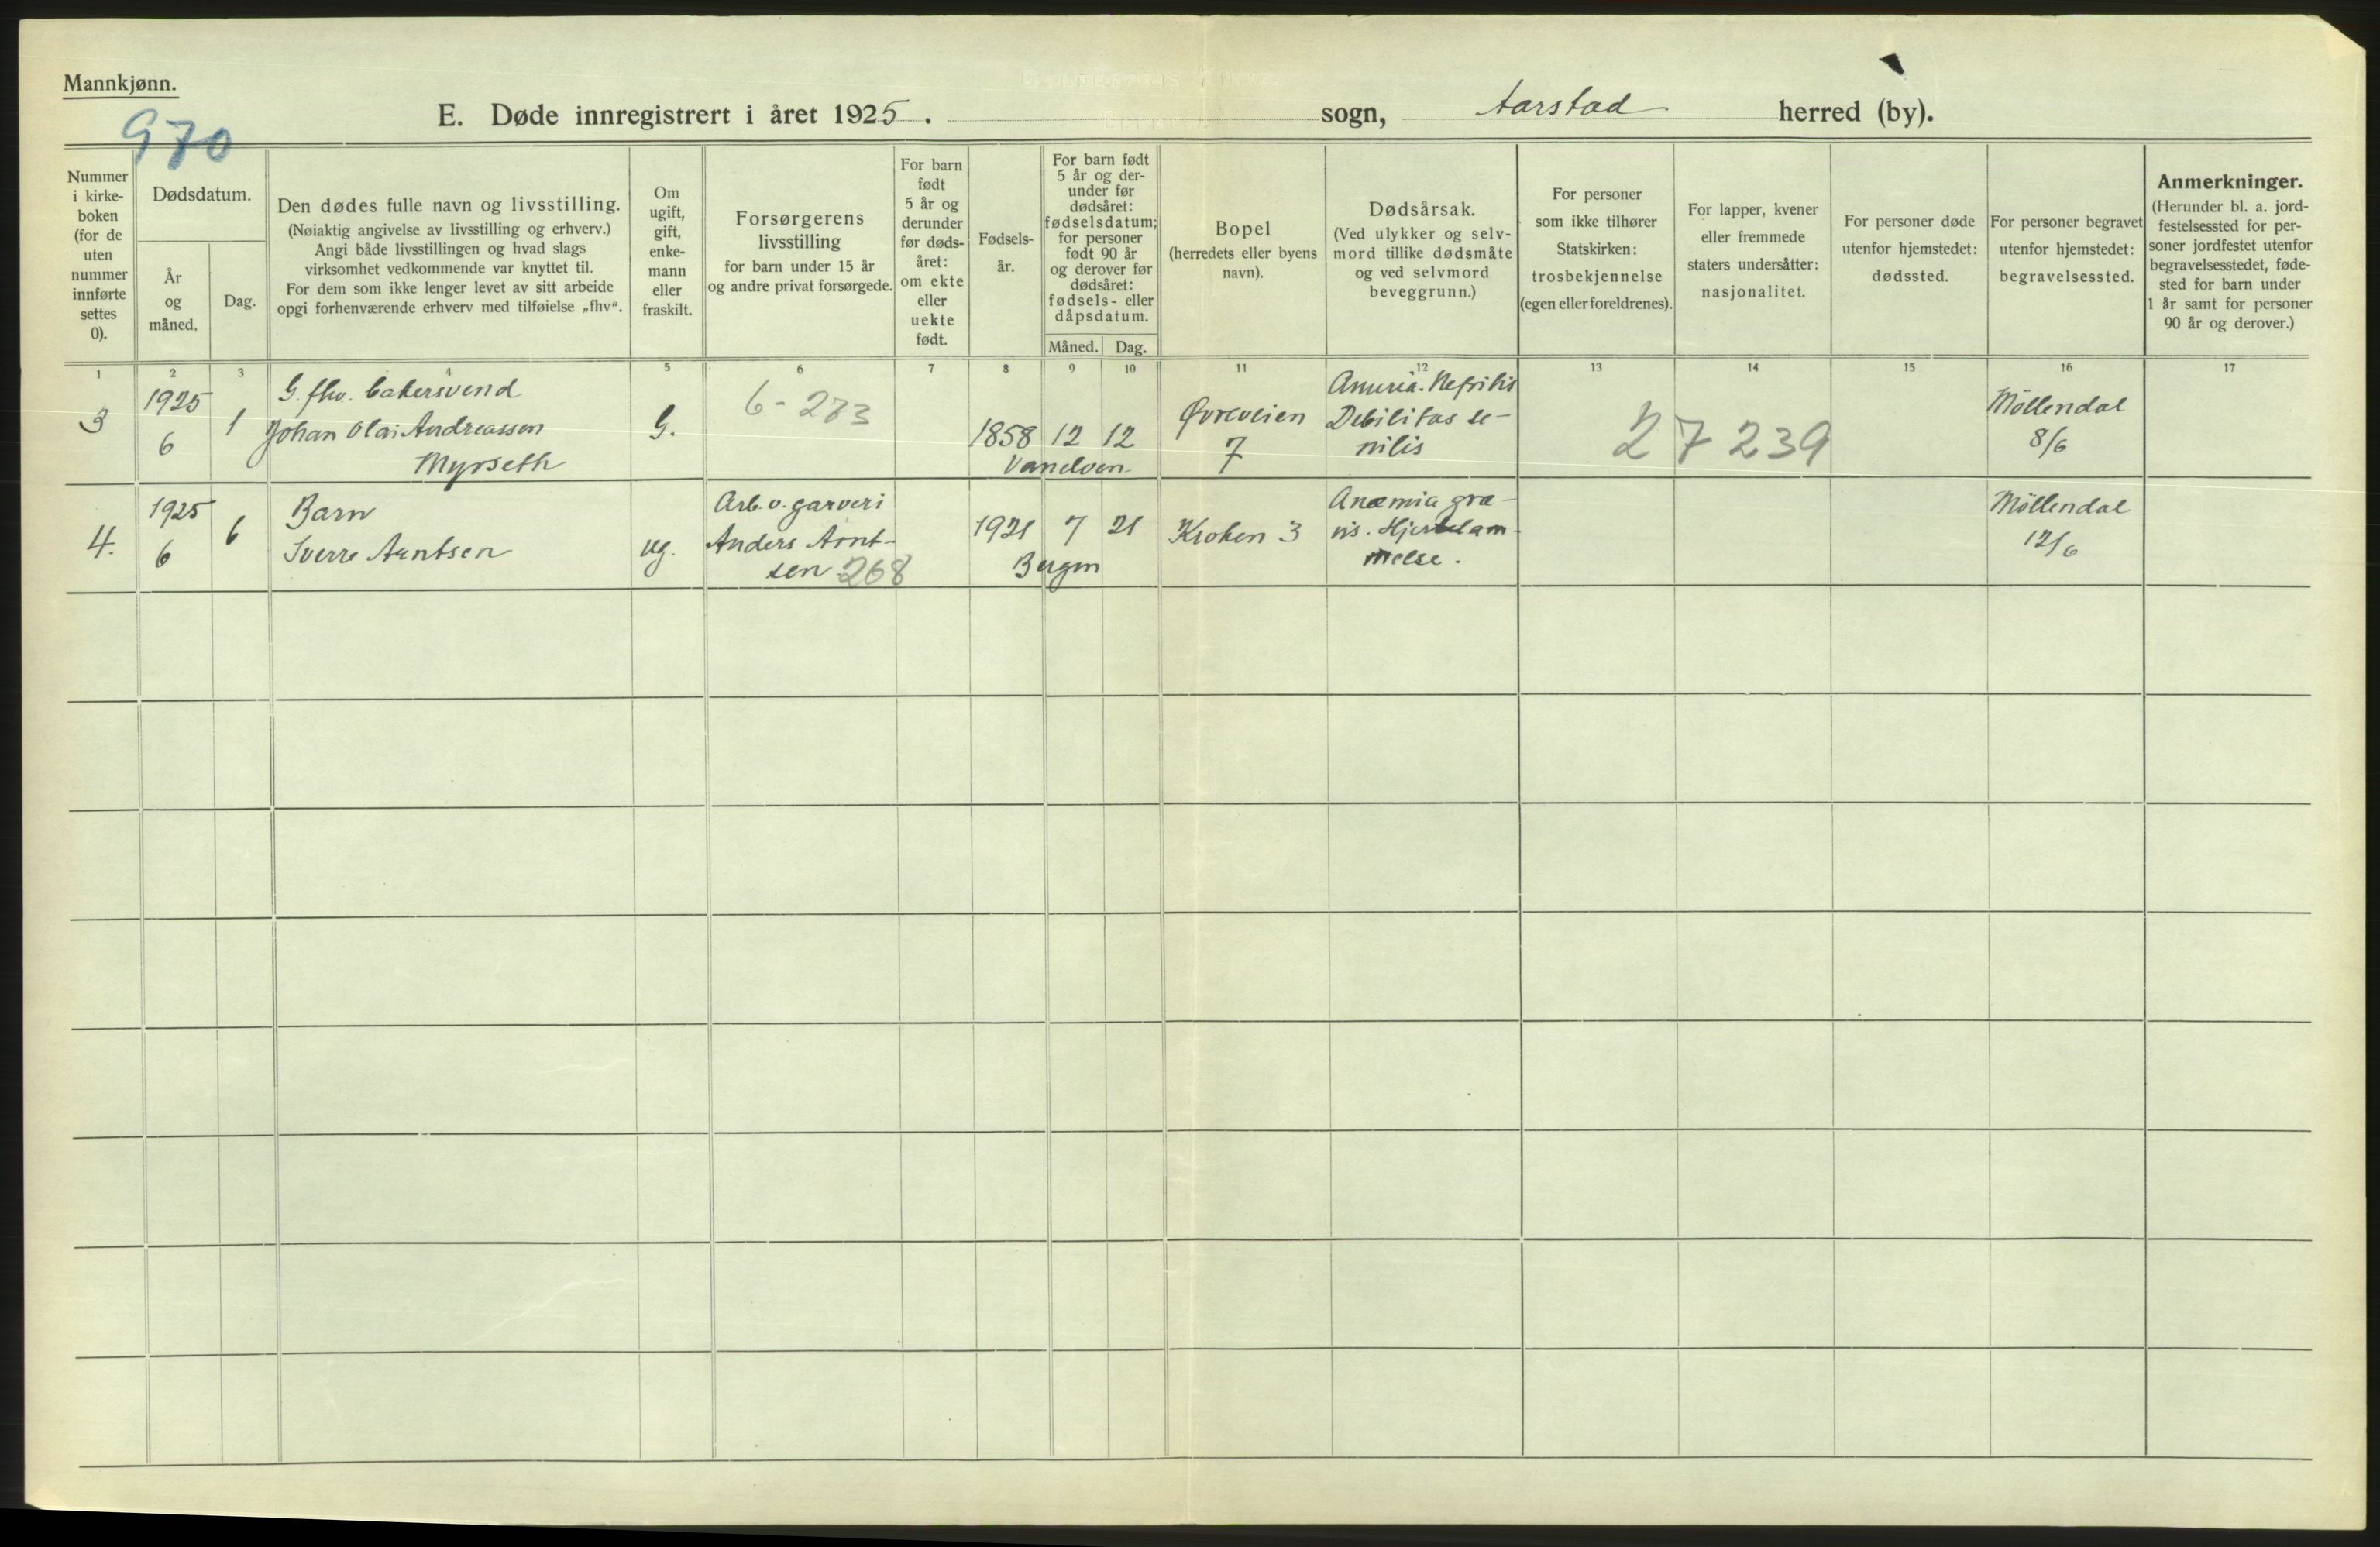 Mannkjønn.
970
E. Døde innregistrert i året 1925. sogn, Aarstad herred (by).
Nummer
i kirke-
boken
(for de
uten
nummer
innførte
settes
0).
Dødsdatum.
År
og
måned.
Dag.
Den dødes fulle navn og livsstilling.
(Nøiaktig angivelse av livsstilling og erhverv.)
Angi både livsstillingen og hvad slags
virksomhet vedkommende var knyttet til.
For dem som ikke lenger levet av sitt arbeide
opgi forhenværende erhverv med tilføielse „fhv“.
Om
ugift,
gift,
enke-
mann
eller
fraskilt.
Forsørgerens
livsstilling
for barn under 15 år
og andre privat forsørgede.
For barn
født
5 år og
derunder
før døds-
året:
om ekte
eller
uekte
født.
Fødsels-
år.
For barn født
5 år og der-
under før
dødsåret:
fødselsdatum;
for personer
født 90 år
og derover før
dødsåret:
fødsels- eller
dåpsdatum.
Måned. Dag.
Bopel
(herredets eller byens
navn).
Dødsårsak.
(Ved ulykker og selv-
mord tillike dødsmåte
og ved selvmord
beveggrunn.)
For personer
som ikke tilhører
Statskirken:
trosbekjennelse
(egen eller foreldrenes).
For lapper, kvener
eller fremmede
staters undersåtter:
nasjonalitet.
For personer døde
utenfor hjemstedet:
dødssted.
For personer begravet
utenfor hjemstedet:
begravelsessted.
Anmerkninger.
(Herunder bl. a. jord-
festelsessted for per-
soner jordfestet utenfor
begravelsesstedet, føde-
sted for barn under
1 år samt for personer
90 år og derover.)
1 2 3 4 5 6 7 8 9 10 11 12 13 14 15 16 17
3
1925
6
1
G. fhv. bakersvend
Johan Olai Andreassen
Myrseth
G.
6-273
1858 12 12
Vanelven
Øvreveien
7
Anuria. Nefritis
Debilitas se-
nilis
27239
Møllendal
8/6
4.
1925
6
6
Barn
Sverre Arntsen
ug.
Arb. v. garveri
Anders Arnt-
sen 268
1921 7 21
Bergen
Kroken 3
Anæmia gra-
vis. Hjertelam-
melse.
Møllendal
12/6